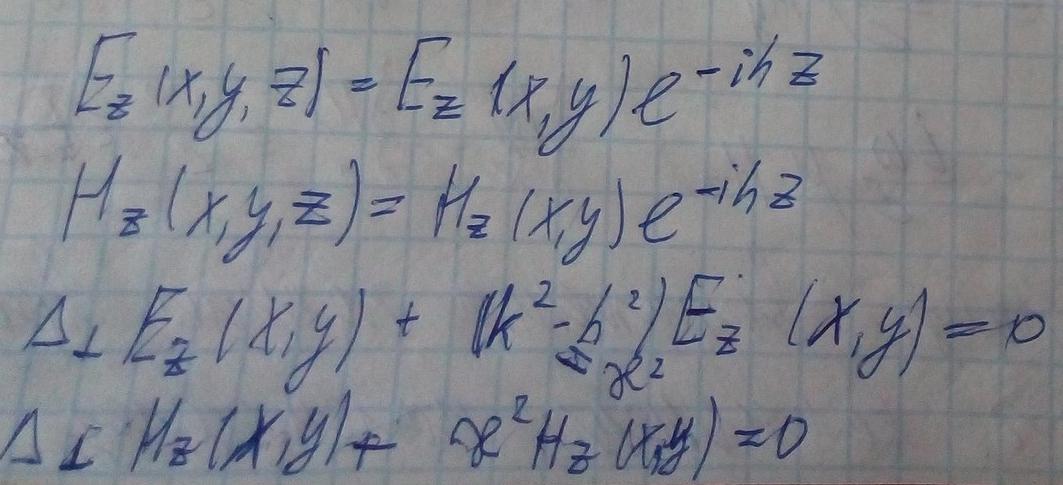 E_z (x,y,z) = E_z (x,y) e^{-ihz}
H_z (x,y,z) = H_z (x,y) e^{-ihz}
Δ_⊥ E_z (x,y) + (k² - h²) E_z (x,y) = 0
æ²
Δ_⊥ H_z (x,y) + æ² H_z (x,y) = 0